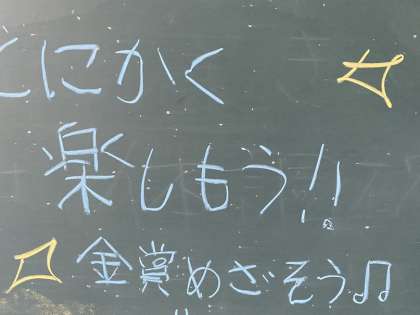 とにかく
楽しもう!!
金賞めざそう♫